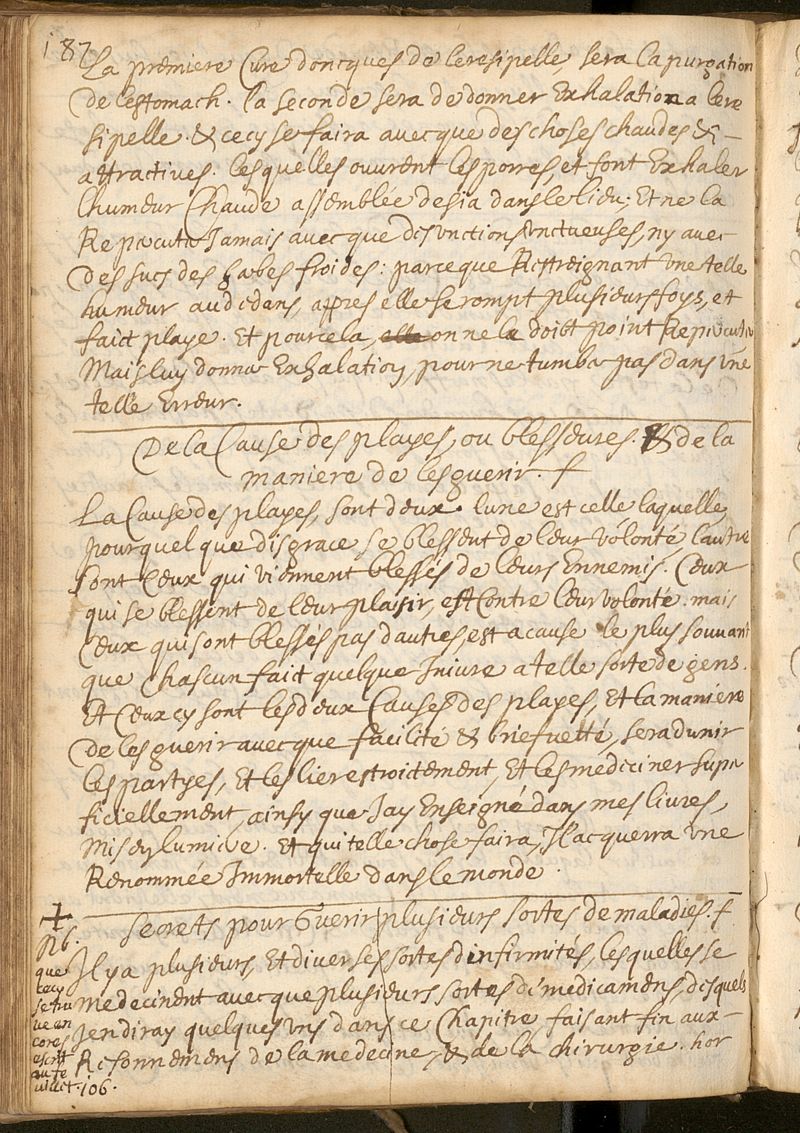 187
La premiere Cure doncques de leresipelle, sera la purgation
de lestomach. la seconde sera de donner Exhalation a lere
sipelle. & cecy se faira avecque des choses chaudes & –
attractives. lesquelles ouvrent les porres, et font Exhaler
lhumeur Chaude assemblée desia dans le lieu; Et ne la
Repercuter Jamais avecque des unctions unctueuses, ny avec
des sucs des herbes froides: parce que Restreignant une telle
humeur au dedans, appres elle se rompt plusieurs foys, et
faict playe. Et pour cela, on ne la doibt point Repercuter
Mais luy donner Exhalation, pour ne tumber pas dans une
telle Erreur.
De la Cause des playes, ou blesseures. & de la
maniere de les guerir. f
La Cause des playes, sont deux. lune est celle laquelle
pour quelque disgrace se blessent de leur volonté, lautre
sont Ceux qui viennent blessés de leurs Ennemis. Ceux
qui se blessent de leur plaisir, est Contre leur volonté. mais
Ceux qui sont blessés pas dautres, est a cause le plus souvant
que Chascun faict quelque Iniure a telle sorte de gens.
Et Ceux cy sont les deux Causes des playes, Et la maniere
de les guerir avecque facilité & briefvetté, sera dunir
les partyes, Et les lier estroictement, Et les mediciner supe
ficiellement, ainsy que Jay Enseigné dans mes livres,
Mis en lumiere. Et qui telle chose faira, Il acquerra une
Renommée Immortelle dans le monde.
Secrets pour Guerir plusieurs sortes de maladies. f
Il y a plusieurs Et diverses sortes dinfirmités, lesquelles se
medecinent avecque plusieurs sortes de medicamens, desquels
Jen diray quelques uns dans ce Chapitre, faisant fin aux –
Resonnemens de la medecine, & de la chirurgie. hor
+
NB.
que
cecy
se trou
ve en
cores
escrit
au fe
uillet. 106.